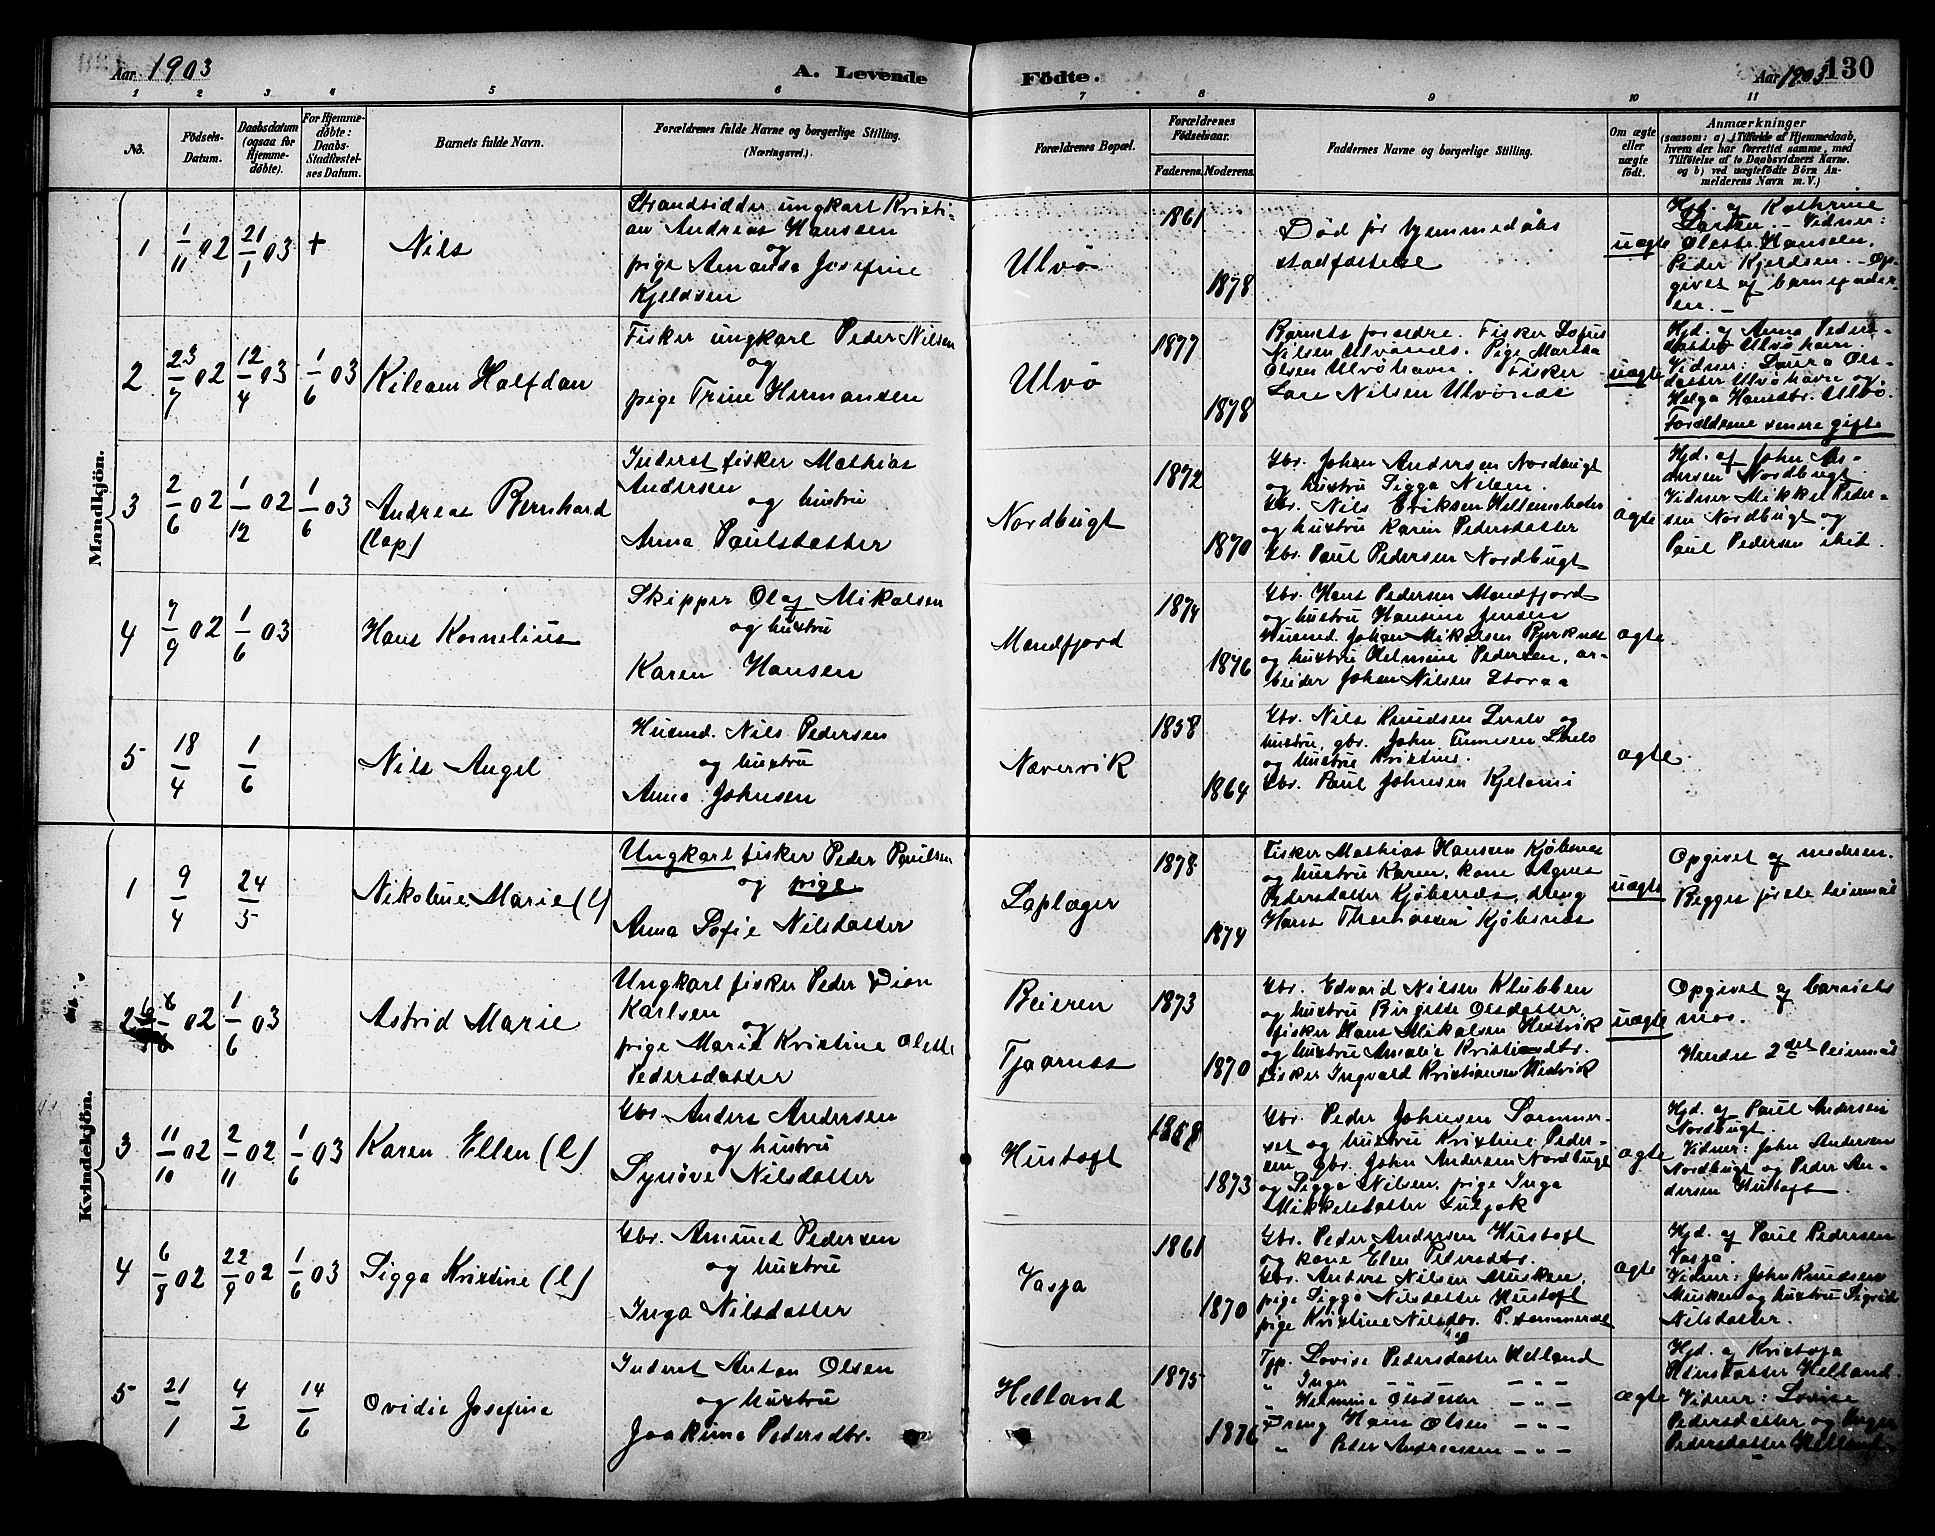 Aar 1903
A. Levende Fødte.
Aar 1903
130
1 2 3 4 5 6 7 8 9 10 11
No.
Fødsels-Datum.
Daabsdatum (ogsaa for Hjemmedøbte).
For Hjemmedøbte: Daabs-Stadfæstelses Datum.
Barnets fulde Navn.
Forældrenes fulde Navne og borgerlige Stilling. (Næringsvei.)
Forældrenes Bopæl.
Forældrenes Fødselsaar.
Faderens. Moderens.
Faddernes Navne og borgerlige Stilling.
Om ægte eller uægte født.
Anmærkninger
(saasom: a) i Tilfælde af Hjemmedaab, hvem der har forrettet samme, med Tilføielse af to Daabsvidners Navne. og b) ved uægtefødte Børn Anmelderens Navn m. V.)
Mandkjøn.
1
1/11 02
21/1 03
+
Nils
Strandsidder ungkarl Kristi-
an Andreas Hanssen
og
pige Amanda Josefine
Kjeldsen
Ulvø
1861
1878
Død før hjemmedåbs
stadfæstelse
uægte
Hjd. af Kathrine
Larsen. Vidner:
Oleste Hansen,
Peder Kjeldsen. Op-
givet af barnefader-
en.
2
23/7 02
12/4 03
1/6 03
Kileam Halfdan
Fisker ungkarl Peder Nilsen
og
pige Trine Hermansen
Ulvø
1877
1878
Barnets forældre. Fisker
Nilsen Ulvønes. Pige Martha
Olsen Ulvøhavn. Fisker
Lars Nilsen Ulvønes
uægte
Hjd. af Anna Peders-
datter Ulvøhavn.
Vidner: Laura Ols-
datter Ulvøhavn og
Helga Hansdtr. Ulvø.
Forældrene senere gifte
3
2/6 02
1/12 02
1/6 03
Andreas Bernhard
(lap)
Inderst fisker Mathias
Andersen
og hustru
Anna Paulsdatter
Nordbugt
1872
1870
Gbr. Johan Andersen Nordbugt
og hustru Sigga Nilsen.
Gbr. Nils Eriksen Hellemsbotn
og hustru Karen Pedersdatter
Gbr. Paul Pedersen Nordbugt
ægte
Hjd. af John An-
dersen Nordbugt
Vidner Mikkel Peder-
sen Nordbugt og
Paul Pedersen ibid.
4
7/9 02
1/6 03
Hans Kornelius
Skipper Olaf Mikalsen
og hustru
Karen Hansen
Mandfjord
1874
1876
Gbr. Hans Pedersen Mandfjord
og hustru Hansine Jensen
Husmd. Johan Mikalsen Bjerknes
og hustru Helmine Pedersen, ar-
beider Johan Nilsen Storaa
ægte
5
18/4
1/6
Nils Angel
Husmd. Nils Pedersen
og hustru
Anna Johnsen
Nævervik
1858
1864
Gbr. Nils Knudsen og
hustru, gbr. John Tomesen
og hustru Kristine.
Gbr. Paul Johnsen
ægte
Kvindekjøn.
1
9/4
24/5
Nikoline Marie (l)
Ungkarl fisker Peder Paulsen
og pige
Anna Sofie Nilsdatter
Laplæger
1878
1874
Fisker Mathias Hansen Kjøbsnes
og hustru Karen, kone Agnes
Pedersdatter Kjøbsnes, dreng
Hans Thomassen Kjøbsnes
uægte
Opgivet af moderen.
Begges første leiermål
2
6/6 02
1/6 03
Astrid Marie
Ungkarl fisker Peder Dion
Karlsen
og
pige Marie Kristine Olette
Pedersdatter
Beieren
Tjaarnes
1873
1870
Gbr. Edvard Nilsen Klubben
og hustru Birgitte Olsdatter,
fisker Hans Mikalsen Hestvik
og hustru Amalie Kristiansdtr.
fisker Ingvald Kristiansen Hestvik
uægte
Opgivet af barnets
mor.
Hendes 2det leiermål
3
11/10 02
2/11 02
1/6 03
Karen Ellen (l)
Gbr. Anders Andersen
og hustru
Synøve Nilsdatter
Hustoft
1868
1873
Gbr. Peder Johnsen Sommer-
set og hustru Kristine Peder-
sen, gbr. John Andersen Nordbugt
og Sigga Nilsen, pige Inga
Mikkelsdatter
ægte
Hjd. af Paul Andersen
Nordbugt.
Vidner: John Andersen
Nordbugt og Peder An-
dersen Hustoft.
4
6/8 02
22/9 02
1/6 03
Sigga Kristine (l)
Gbr. Amund Pedersen
og hustru
Inga Nilsdatter
Vasja
1861
1870
Gbr. Peder Andersen Hustoft
og kone Elen Pedersdtr.
Gbr. Anders Nilsen Musken,
pige Sigga Nilsdatter Hustoft
pige Kristine Nilsdtr. P. Sommerset
ægte
Hjd. af Paul Pedersen
Vasja.
Vidner: John Knudsen
Musken og hustru Sigrid
Nilsdatter.
5
21/1
4/2
14/6
Ovidie Josefine
Inderst Anton Olsen
og hustru
Joakima Pedersdtr.
Helland
1875
1876
Pige Lovise Pedersdatter Helland
" Inger " " – " –
" Helmine Olsdatter – " –
Dreng Hans Olsen – " –
" Peter Andreasen – " –
ægte
Hjd. af Kristofa
Hansdatter Helland.
Vidner: Lovise
Pedersdatter og Inger
Pedersdatter Helland.